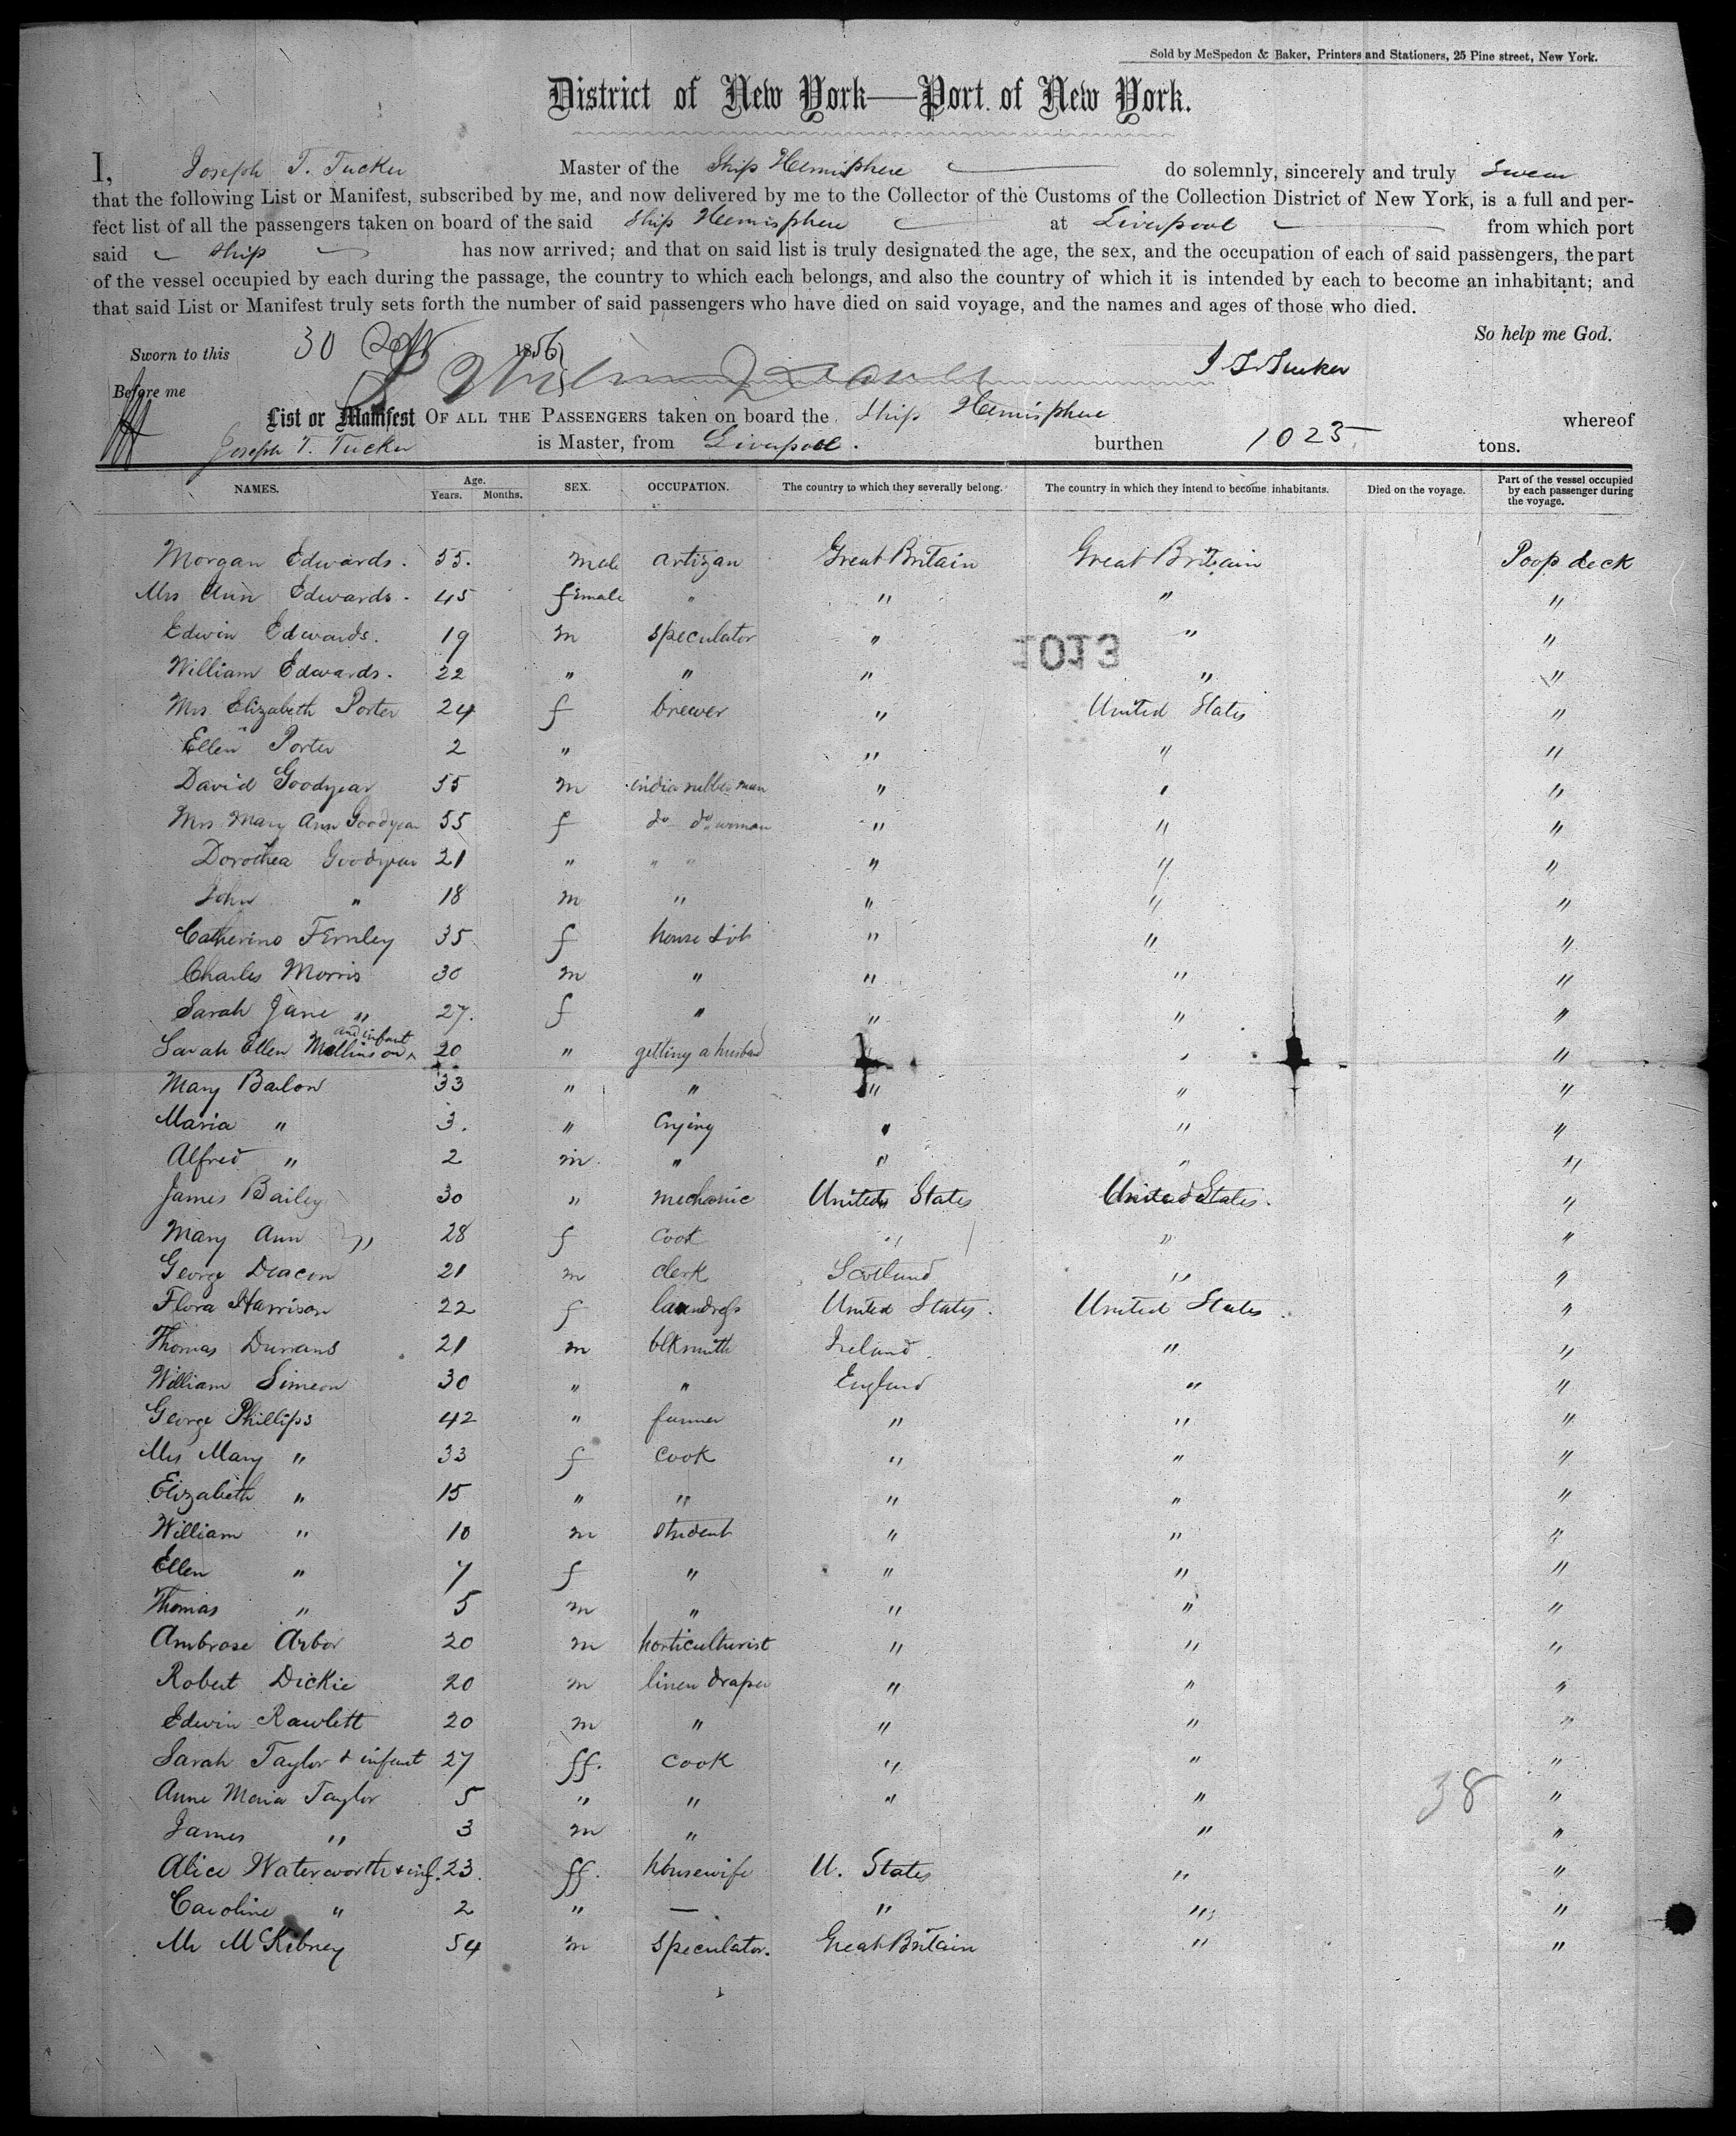 Sold by McSpedon & Baker, Printers and Stationers, 25 Pine street, New York.
District of New York—Port of New York.
I, Joseph T. Tucker Master of the Ship Hemisphere do solemnly, sincerely and truly swear
that the following List or Manifest, subscribed by me, and now delivered by me to the Collector of the Customs of the Collection District of New York, is a full and per-
fect list of all the passengers taken on board of the said Ship Hemisphere at Liverpool from which port
said ship has now arrived; and that on said list is truly designated the age, the sex, and the occupation of each of said passengers, the part
of the vessel occupied by each during the passage, the country to which each belongs, and also the country of which it is intended by each to become an inhabitant; and
that said List or Manifest truly sets forth the number of said passengers who have died on said voyage, and the names and ages of those who died.
So help me God.
Sworn to this 30 1856
J T Tucker
Before me
List or Manifest OF ALL THE PASSENGERS taken on board the Ship Hemisphere whereof
Joseph T. Tucker is Master, from Liverpool. burthen 1025 tons.
NAMES. Age. Years. Months. SEX. OCCUPATION. The country to which they severally belong. The country in which they intend to become inhabitants. Died on the voyage. Part of the vessel occupied by each passenger during the voyage.
Morgan Edwards. 55. male artizan Great Britain Great Britain Poop deck
Mrs Ann Edwards. 45 female " " " "
Edwin Edwards. 19 m speculator " " "
1013
William Edwards. 22 " " " " "
Mrs Elizabeth Porter 24 f brewer " United States "
Ellen Porter 2 " " " "
David Goodyear 55 m india rubber man " " "
Mrs Mary Ann Goodyear 55 f do do woman " " "
Dorothea Goodyear 21 " " " " " "
John " 18 m " " " "
Catherine Fernley 35 f house " " "
Charles Morris 30 m " " " "
Sarah Jane " 27. f " " " "
Sarah Ellen Mollinson and infant 20 " getting a husband " " "
Mary Balon 33 " " " " "
Maria " 3. " Crying " " "
Alfred " 2 m. " " " "
James Bailey 30 " mechanic United States United States. "
Mary Ann " 28 f cook " " "
George Deacon 21 m clerk Scotland " "
Flora Harrison 22 f laundress United States. United States. "
Thomas Durrans 21 m blksmith Ireland. " "
William Simeon 30 " " England " "
George Phillips 42 " farmer " " "
Mrs Mary " 33 f cook " " "
Elizabeth " 15 " " " " "
William " 10 m student " " "
Ellen " 7 f " " " "
Thomas " 5 m " " " "
Ambrose Arbor 20 m horticulturist " " "
Robert Dickie 20 m linen draper " " "
Edwin Rawlett 20 m " " " "
Sarah Taylor & infant 27 ff. cook " " "
Anne Maria Taylor 5 " " " " "
38
James " 3 m " " "
Alice Waterworth & inf. 23. ff. housewife U. States " "
Caroline " 2 " — " " "
Mr McKibney 54 m speculator. Great Britain " "